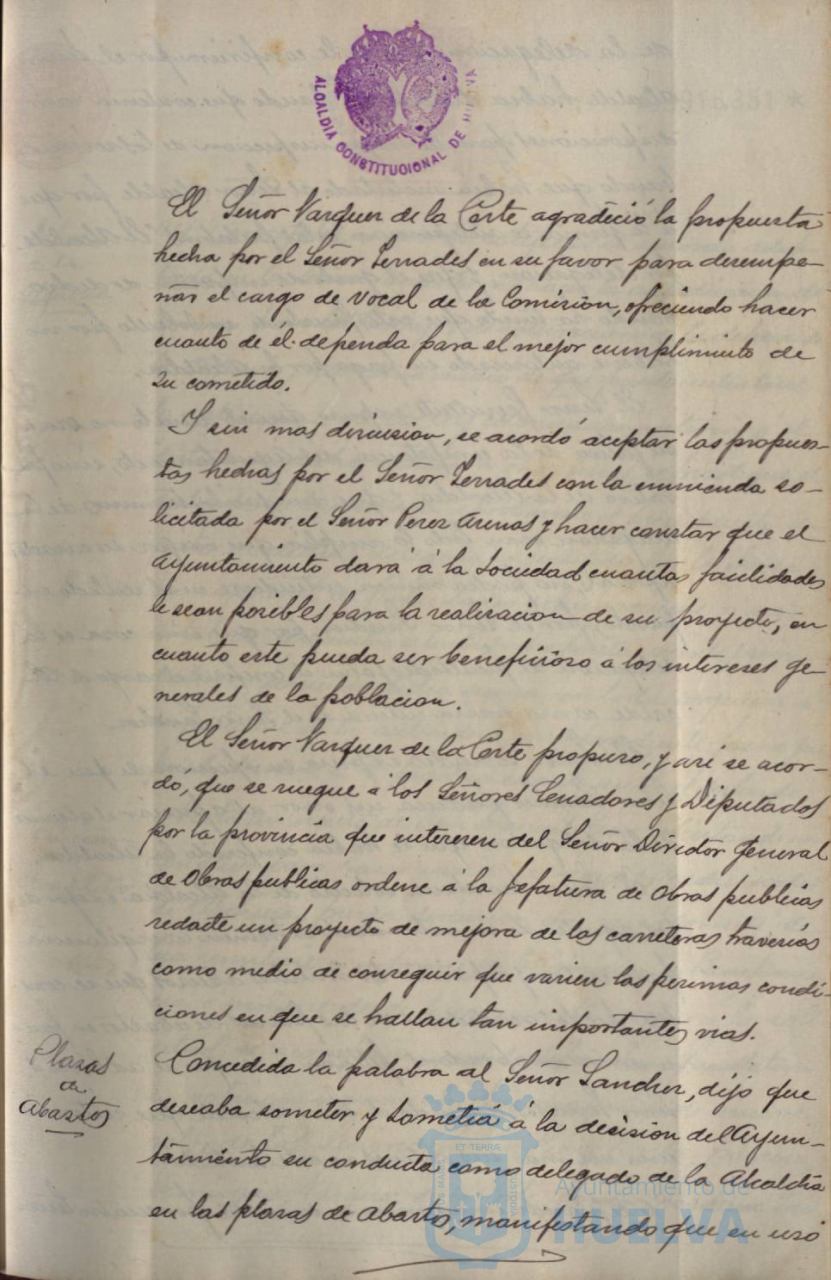 ALCALDIA CONSTITUCIONAL DE HUELVA
El Señor Vazquez de la Corte agradeció la propuesta
hecha por el Señor Terrades en su favor para desempe-
ñar el cargo de vocal de la Comision, ofreciendo hacer
cuanto de él dependa para el mejor cumplimiento de
su cometido.
Y sin mas discusion, se acordó aceptar las propues-
tas hechas por el Señor Terrades con la enmienda so-
licitada por el Señor Perez Arenas y hacer constar que el
Ayuntamiento dará á la Sociedad cuantas facilidades
le sean posibles para la realizacion de su proyecto, en
cuanto este pueda ser beneficioso á los intereses ge
nerales de la poblacion.
El Señor Vazquez de la Corte propuso, y asi se acor-
dó, que se ruegue á los Señores Senadores y Diputados
por la provincia que interesen del Señor Director General
de Obras publicas ordene á la Jefatura de Obras publicas
redacte un proyecto de mejora de las carreteras travesias
como medio de conseguir que varien las pesimas condi-
ciones en que se hallan tan importantes vias.
Plazas
de
Abastos
Concedida la palabra al Señor Sanchez, dijo que
deseaba someter y sometia á la decision del Ayun-
tamiento su conducta como delegado de la Alcaldia
en las plazas de Abastos, manifestando que en uso
Ayuntamiento de
HUELVA